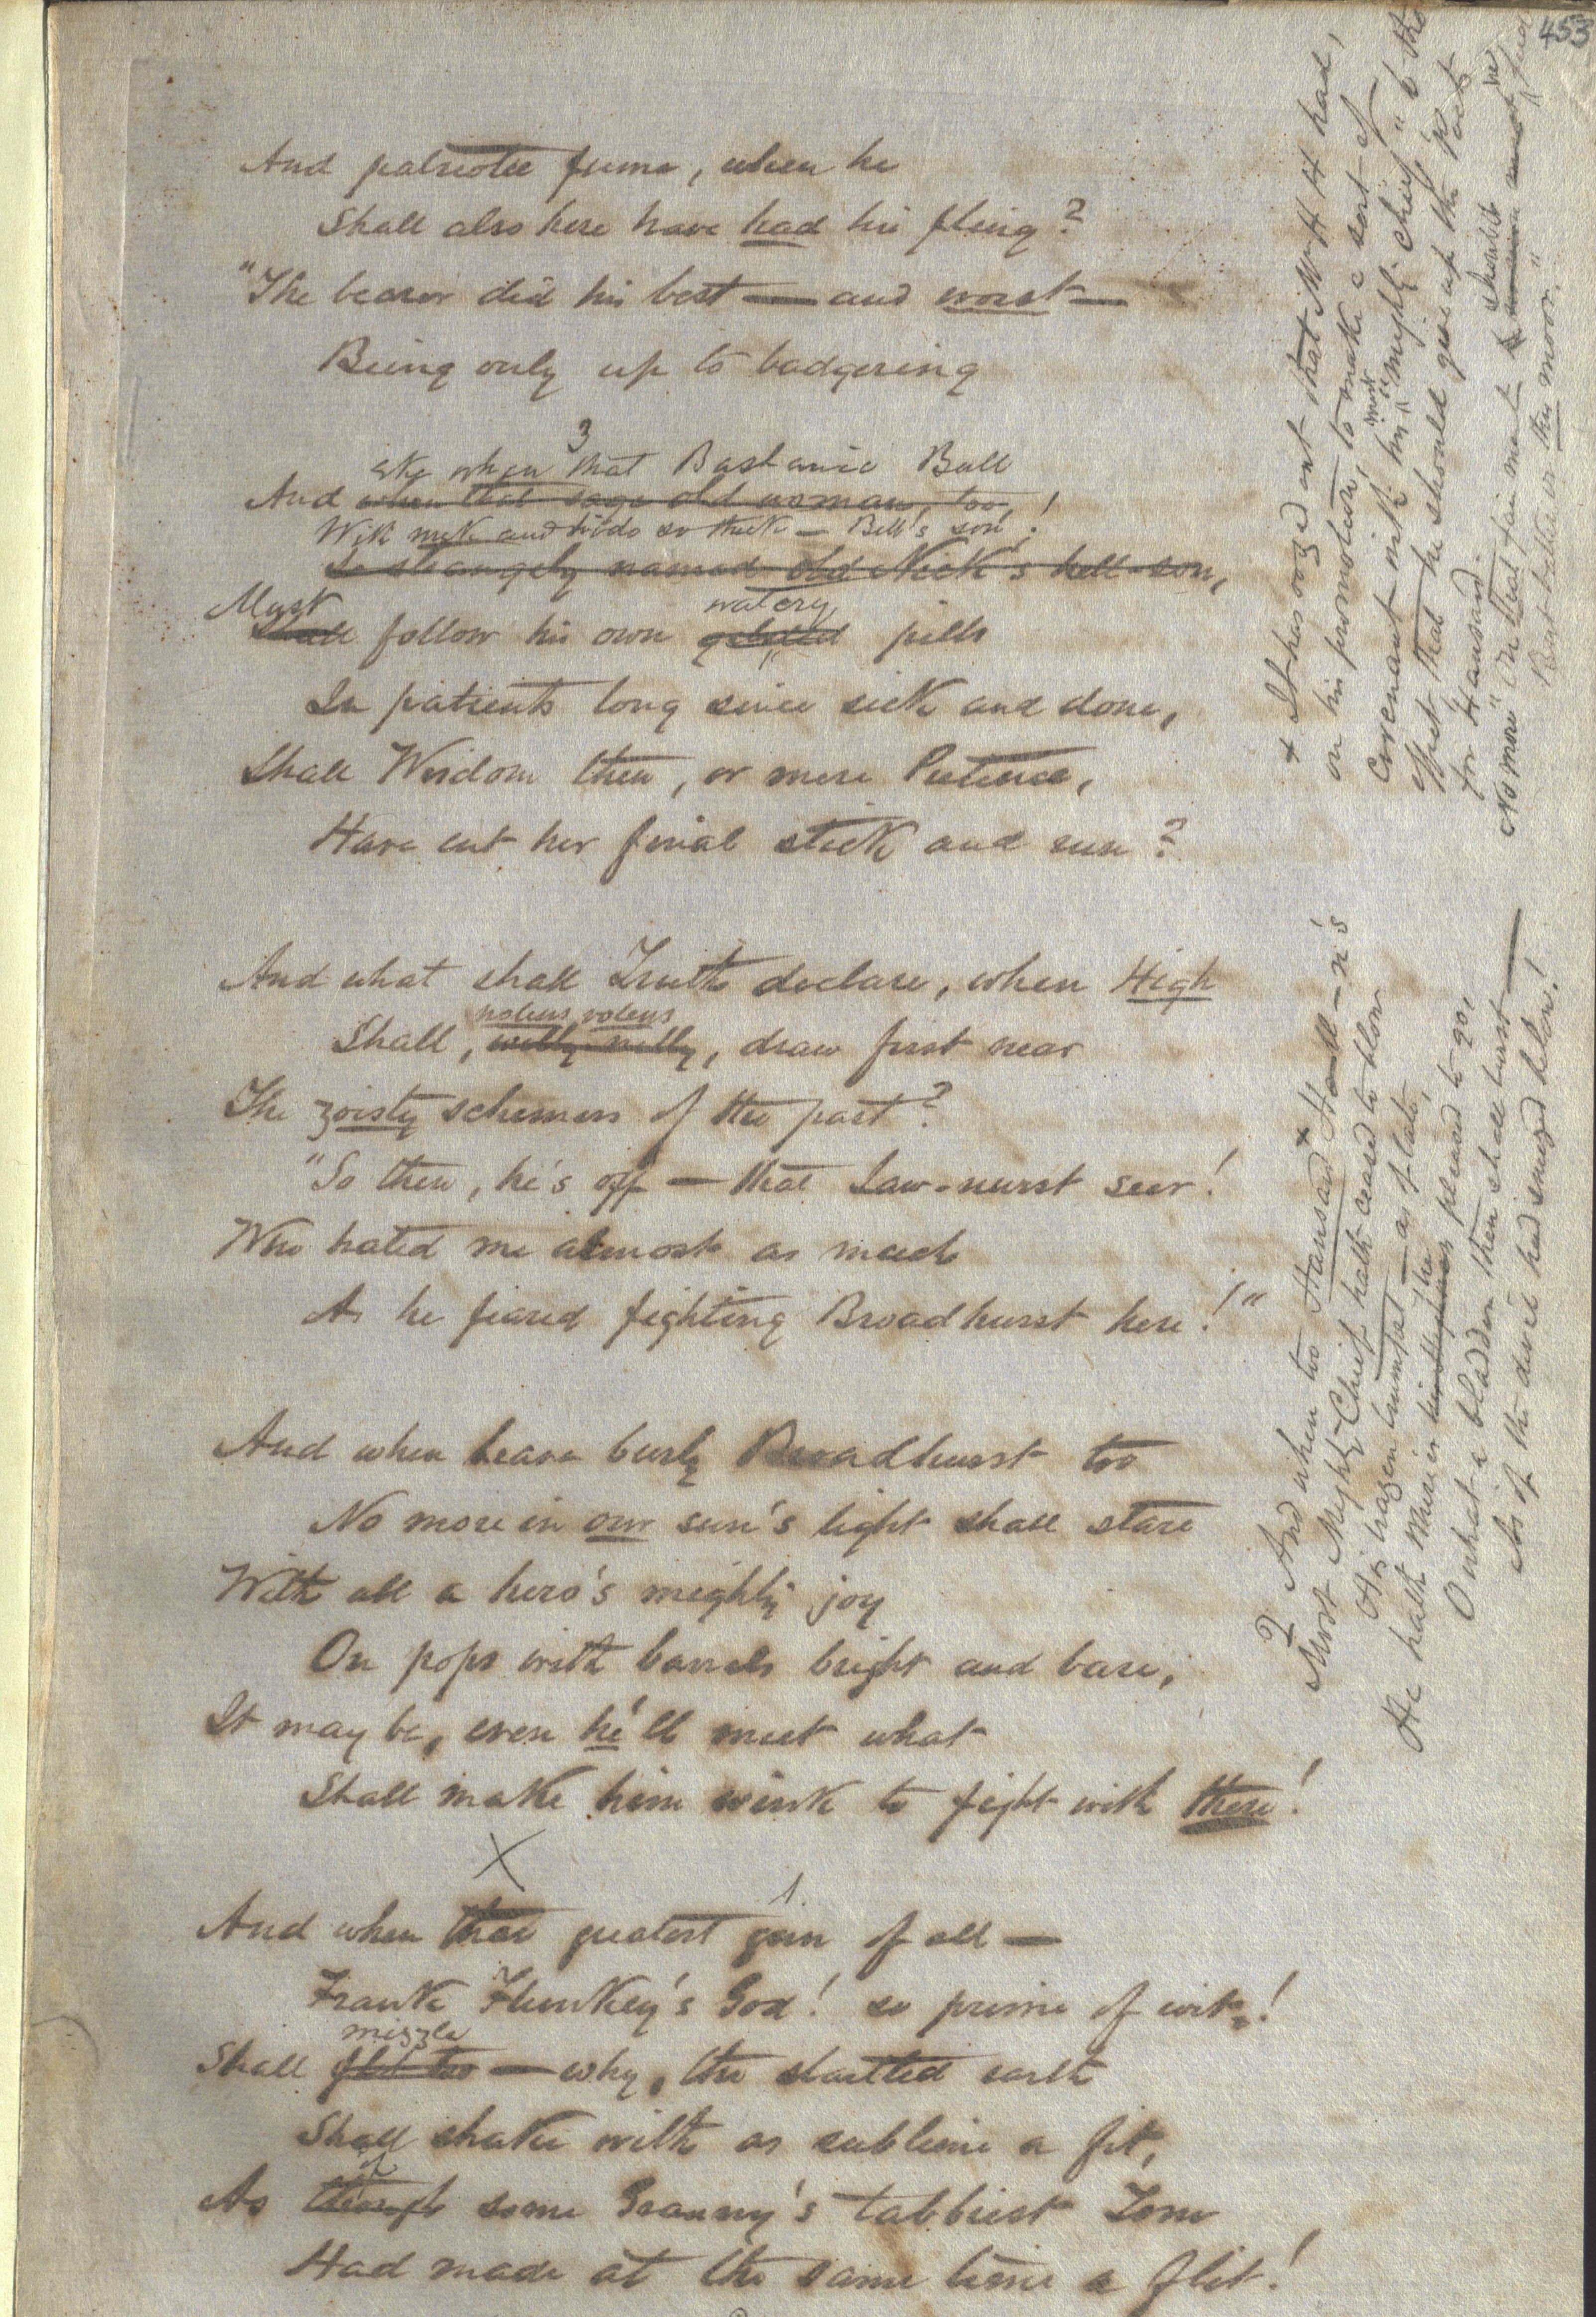 453
And patriotee fume, when he
Shall also here have had his fling?
"The bearer did his best — and worst —
Being only up to badgering
3
eke when that Bastanic Bull
And when that sage old woman, too,!
With neck and hide so thick — Bell's son!
So strangely named old Nick's hell-son,
Must watery
Shall follow his own pills
In patients long since sick and done,
Shall Wisdom then, or mere Patience,
Have cut her final stick and run?
And what shall Truth declare, when High
nolens volens
Shall, willy nilly, draw first near
The zoisty schemers of the past?
"So then, he's off — that Law-nurst seer!
Who hated me almost as much
As he feared fighting Broadhurst here!"
And when brave burly Broadhurst too
No more in our sun's light shall stare
With all a hero's mighty joy
On pops with barrels bright and bare,
It may be, even he'll meet what
Shall make him wink to fight with there!
X
And when that greatest gun of all —
Frank Flunkey's God! so prime of wit!
mizzle
Shall flit too — why, the startled earth
Shall shake with as sublime a fit,
if
As though some Granny's tabbiest Tom
Had made at the same time a flit!
+ It has oozed out that Mr H H had,
on his promotion, to make a sort of
most
Covenant with his "mighty chief," to the
effect that he should give up the Poets
for Hansard.
should he
No more "On that fair mount find
But battle in the moor."
2 And when too Hansard + Hall-n's
Most Mighty-Chief hath ceased to blow
His brazen trumpet — as of late,
he
He hath pleased to go,
O what a bladder then shall burst —
As if the devil had sneezed below!